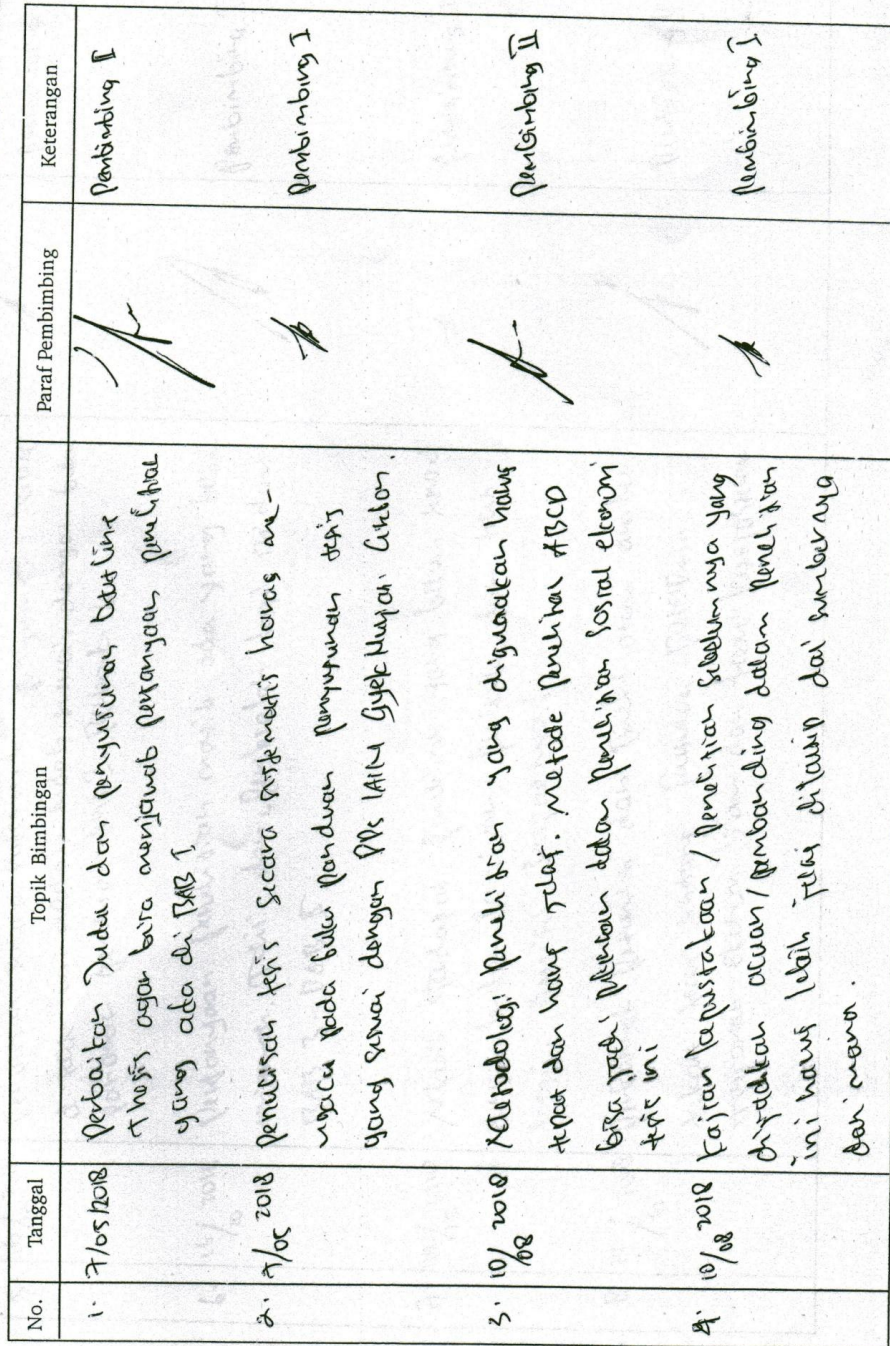 No. Tanggal Topik Bimbingan Paraf Pembimbing Keterangan
1. 7/05/2018 Perbaikan Judul dan penyusunan outline Pembimbing II
Thesis agar bisa menjawab pertanyaan penelitian
yang ada di BAB I
2. 7/05 2018 Penulisan tesis secara sistematis harus me- Pembimbing I
ngacu pada buku panduan penyusunan tesis
yang sesuai dengan PPs IAIN Syekh Nurjati Cirebon.
3. 10/08 2018 Metodologi Penelitian yang digunakan harus Pembimbing II
tepat dan harus jelas. Metode Penelitian ABCD
bisa jadi dalam Penelitian Sosial ekonomi
tesis ini
4. 10/08 2018 Kajian kepustakaan / Penelitian Sebelumnya yang Pembimbing I
dijadikan acuan/pembanding dalam Penelitian
ini harus lebih jelas dikutip dari sumbernya
dari mana.